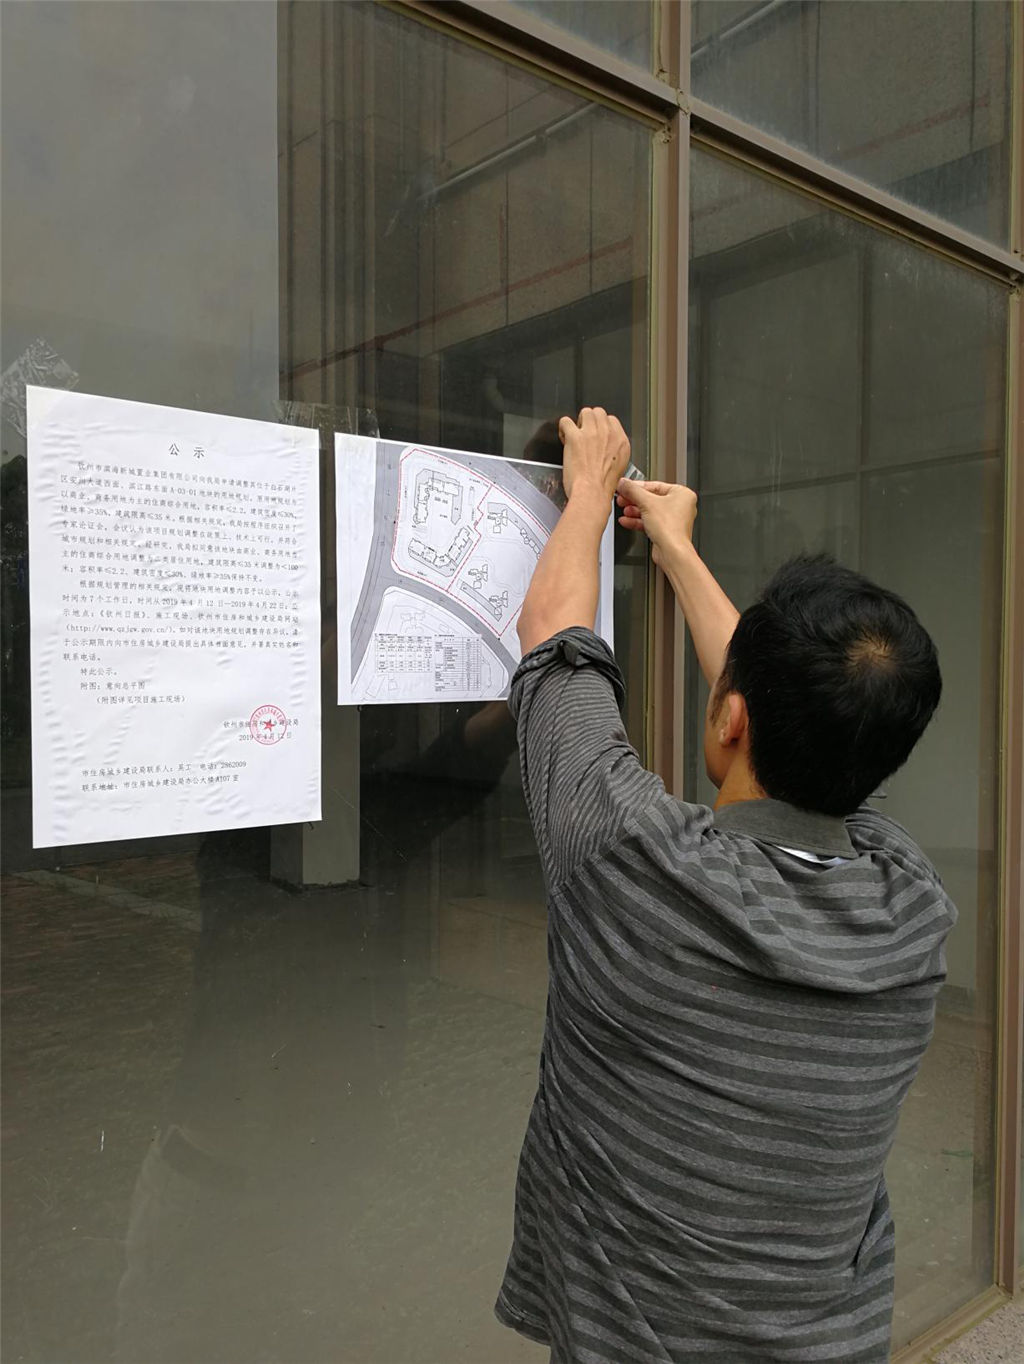 公 示
钦州市滨海新城置业集团有限公司向我局申请调整其位于白石湖片
区安州大道西面、滨江路东面A-03-01地块的用地规划，原用地规划为
以商业、商务用地为主的住商综合用地，容积率≤2.2，建筑密度≤30%，
绿地率≥35%，建筑限高≤35米。根据相关规定，我局按程序组织召开了
专家论证会，会议认为该项目规划调整在政策上、技术上可行，并符合
城市规划和相关规定。经研究，我局拟同意该地块由商业、商务用地为
主的住商综合用地调整为二类居住用地，建筑限高≤35米调整为<100
米；容积率≤2.2、建筑密度≤30%、绿地率≥35%保持不变。
根据规划管理的相关规定，现将地块用地调整内容予以公示，公示
时间为7个工作日，时间从2019年4月12日—2019年4月22日；公
示地点：《钦州日报》、施工现场、钦州市住房和城乡建设局网站
（http://www.qzjgw.gov.cn/）。如对该地块用地规划调整存在异议，请
于公示期限内向市住房城乡建设局提出具体书面意见，并署真实姓名和
联系电话。
特此公示。
附图：意向总平图
（附图详见项目施工现场）
钦州市住房和城乡建设局
2019年4月12日
市住房城乡建设局联系人：吴工 电话：2862009
联系地址：市住房城乡建设局办公大楼A107室